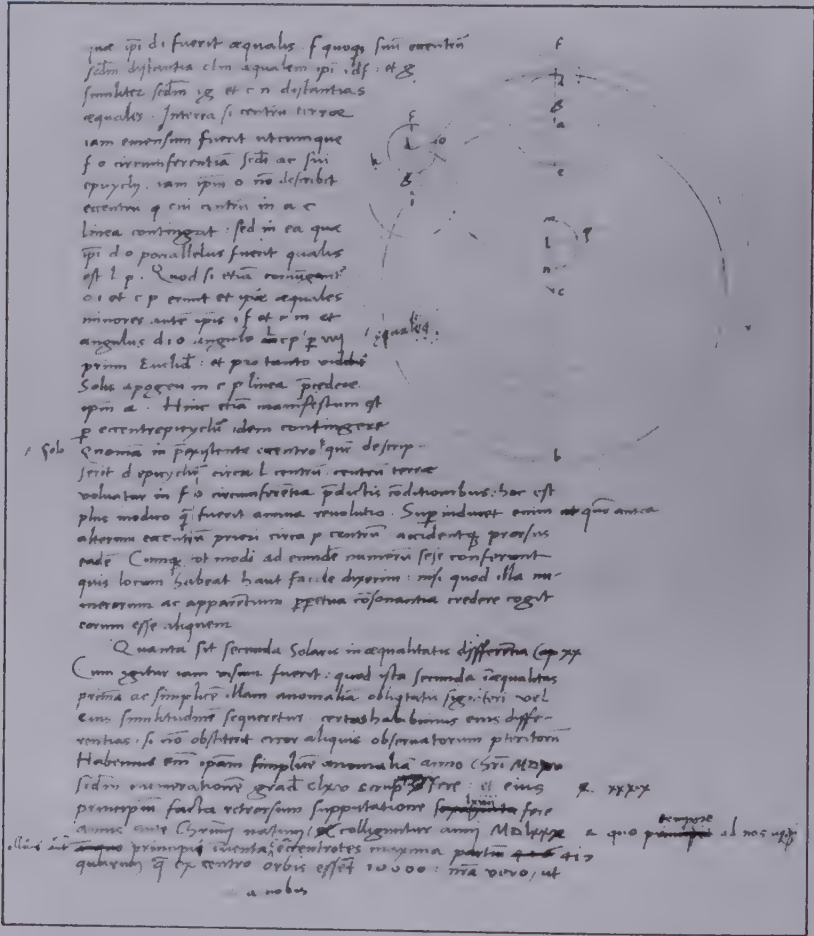 quae ipi d i fuerit aequalis f quoqz sui eccentri
scdm distantia c l m aequalem ipi i d f : et g
similiter scdm i g et c n distantias
aequales. Interea si centru terrae
iam emensum fuerit utcumque
f o circumferentiã scdi ac sui
epicycli, iam ipm o nõ describet
eccentru cui centru in a c
linea contingat : sed in ea qua
ipi d o parallelus fuerit qualis
est l p. Quod si etiã coniungant
o i et c p erunt et ipae aequales
minores aute ipis i f et c m et
angulus d i o angulo l c p p viij
primi Euclid : et pro tanto videbit
Solis apogeu in c p linea precedere
ipm a. Hinc etiã manifestum est
p eccentrepicyclu idem contingere
Quoniã in preexistente eccentro que descrip-
serit d epicycliu circa l centru centru terrae
voluatur in f o circumferentia predictis cõditionibus : hoc est
plus modico q fuerit annua revolutio. Sup induret enim
alterum eccentru priori circa p centru accidentq prorsus
eade Cumq tot modi ad eunde numeru sese conferant
quis locum habeat haut facile dixerim : nisi quod illa nu-
merorum ac apparentium ppetua cõsonantia credere cogit
eorum esse aliquem
Quanta sit secunda Solaris inaequalitatis differentia Cap xx
Cum igitur iam visum fuerit : quod ista secunda inaequalitas
prima ac simplice illam anomaliã obliqtatis signiferi vel
eius similitudine sequeretur certas habebimus eius diffe-
rentias : si nõ obstiterit error aliquis observatorum pteritoru
Habemus em ipam simplice anomaliã anno Chri MDxv
scdm numeratione grad clxv scrup fere : et eius xxxix
principiu facta retrorsum supputatione lxiiii fere
annis ante Christu natum colliguntur anni MDlxxx a quo tempore ad nos usqz
illius aut principii inventa eccentrotes maxima partiu 417
quarum q ex centro orbis essent 10000 : nra vero, ut
a nobis
aequales
Solis
f
d
g
a
e
m
l
n
c
p
b
f
d
o
k
g
i